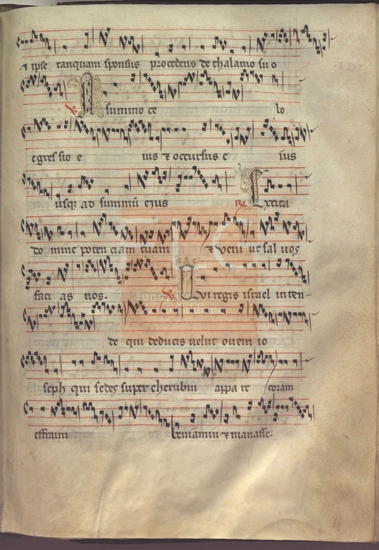 & ipse tanquam sponsus procedens de thalamo su o
℣. A summo ce lo
egressio e ius & occursus e ius
usq; ad summū eius ℟. Excita
do mine potenciam tuam & veni ut sal vos
faci as nos. ℣. Qui regis israel inten-
de qui deducis velut ovem io
seph qui sedes super cherubin appa re coram
effraim beniamin & manasse.